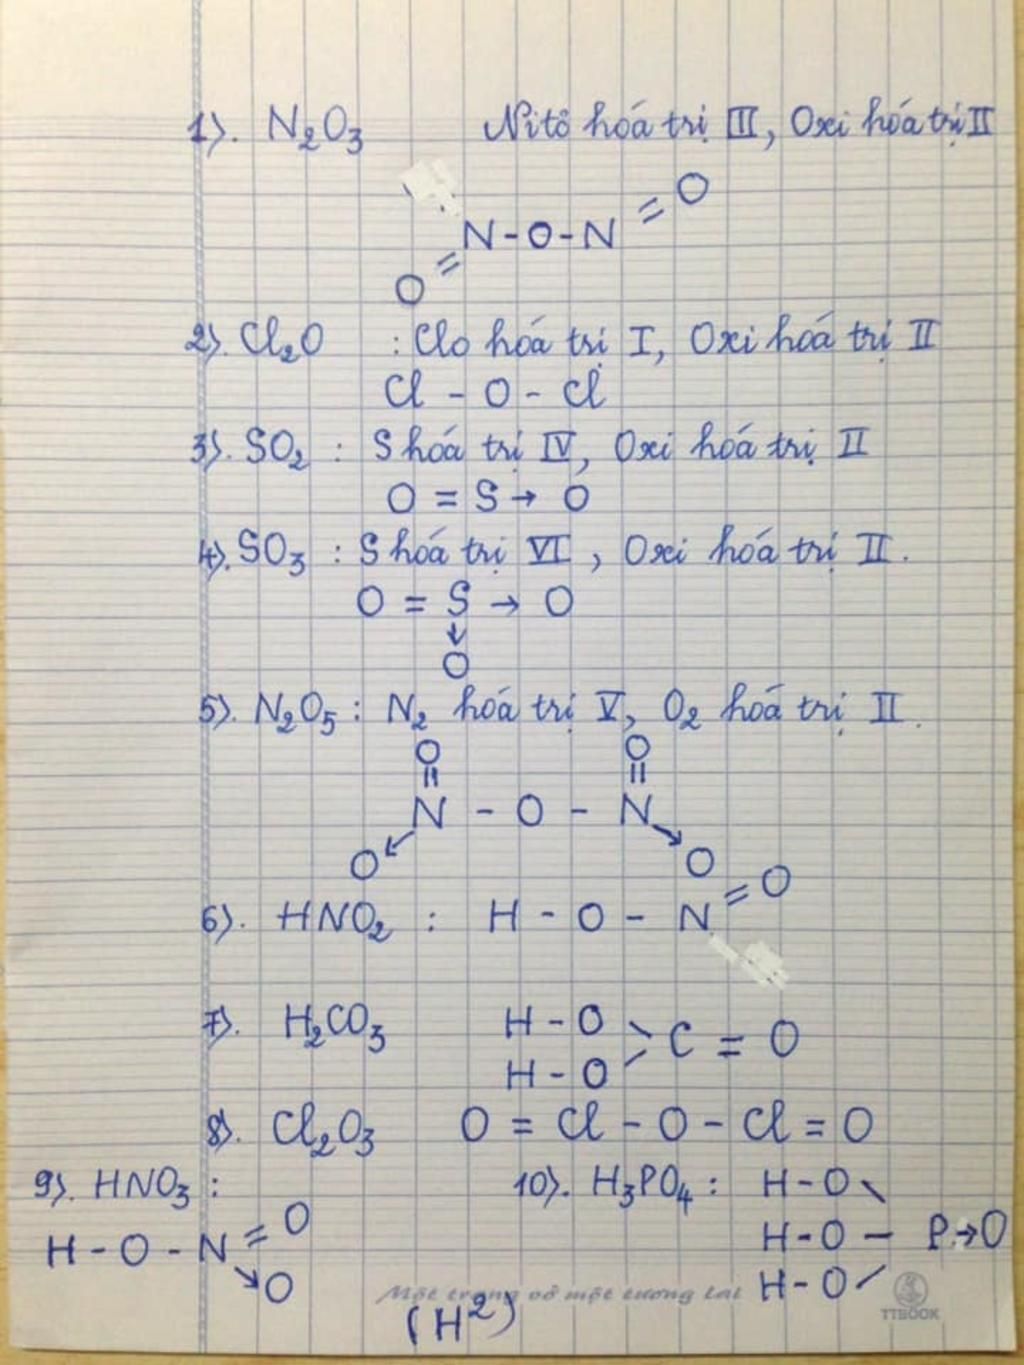 1). N₂O₃ Nitô hóa trị III, Oxi hóa trị II
= O
N - O - N
O =
2). Cl₂O : Clo hóa trị I, Oxi hoá trị II
Cl - O - Cl
3). SO₂ : S hoá trị IV, Oxi hoá trị II
O = S → O
4). SO₃ : S hóa trị VI, Oxi hoá trị II.
O = S → O
↓
O
5). N₂O₅ : N₂ hoá trị V, O₂ hoá trị II.
O O
|| ||
N - O - N
O ↙ ↘ O
= O
6). HNO₂ : H - O - N
7). H₂CO₃ H - O > C = O
H - O
8). Cl₂O₃ O = Cl - O - Cl = O
9). HNO₃ :
= O
H - O - N
↘ O
10). H₃PO₄ : H - O \
H - O — P → O
H - O /
Một trang vở một tương lai
(H²)
TTBOOK